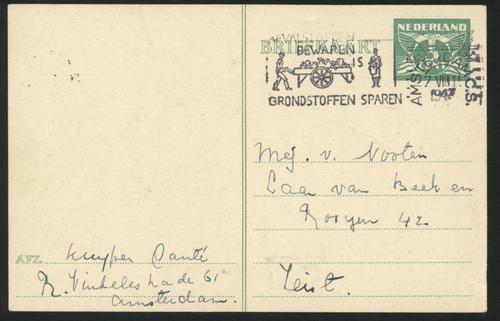 BRIEFKAART
NEDERLAND
BEWAREN
IS
GRONDSTOFFEN SPAREN
AMSTERDAM C.S.
7 VIII
1947
Mej. v. Nooten
Laan van Beek en
Rooyen 42
Zeist.
AFZ.
Kuyper Danté
R. Vinkeleskade 61
Amsterdam.